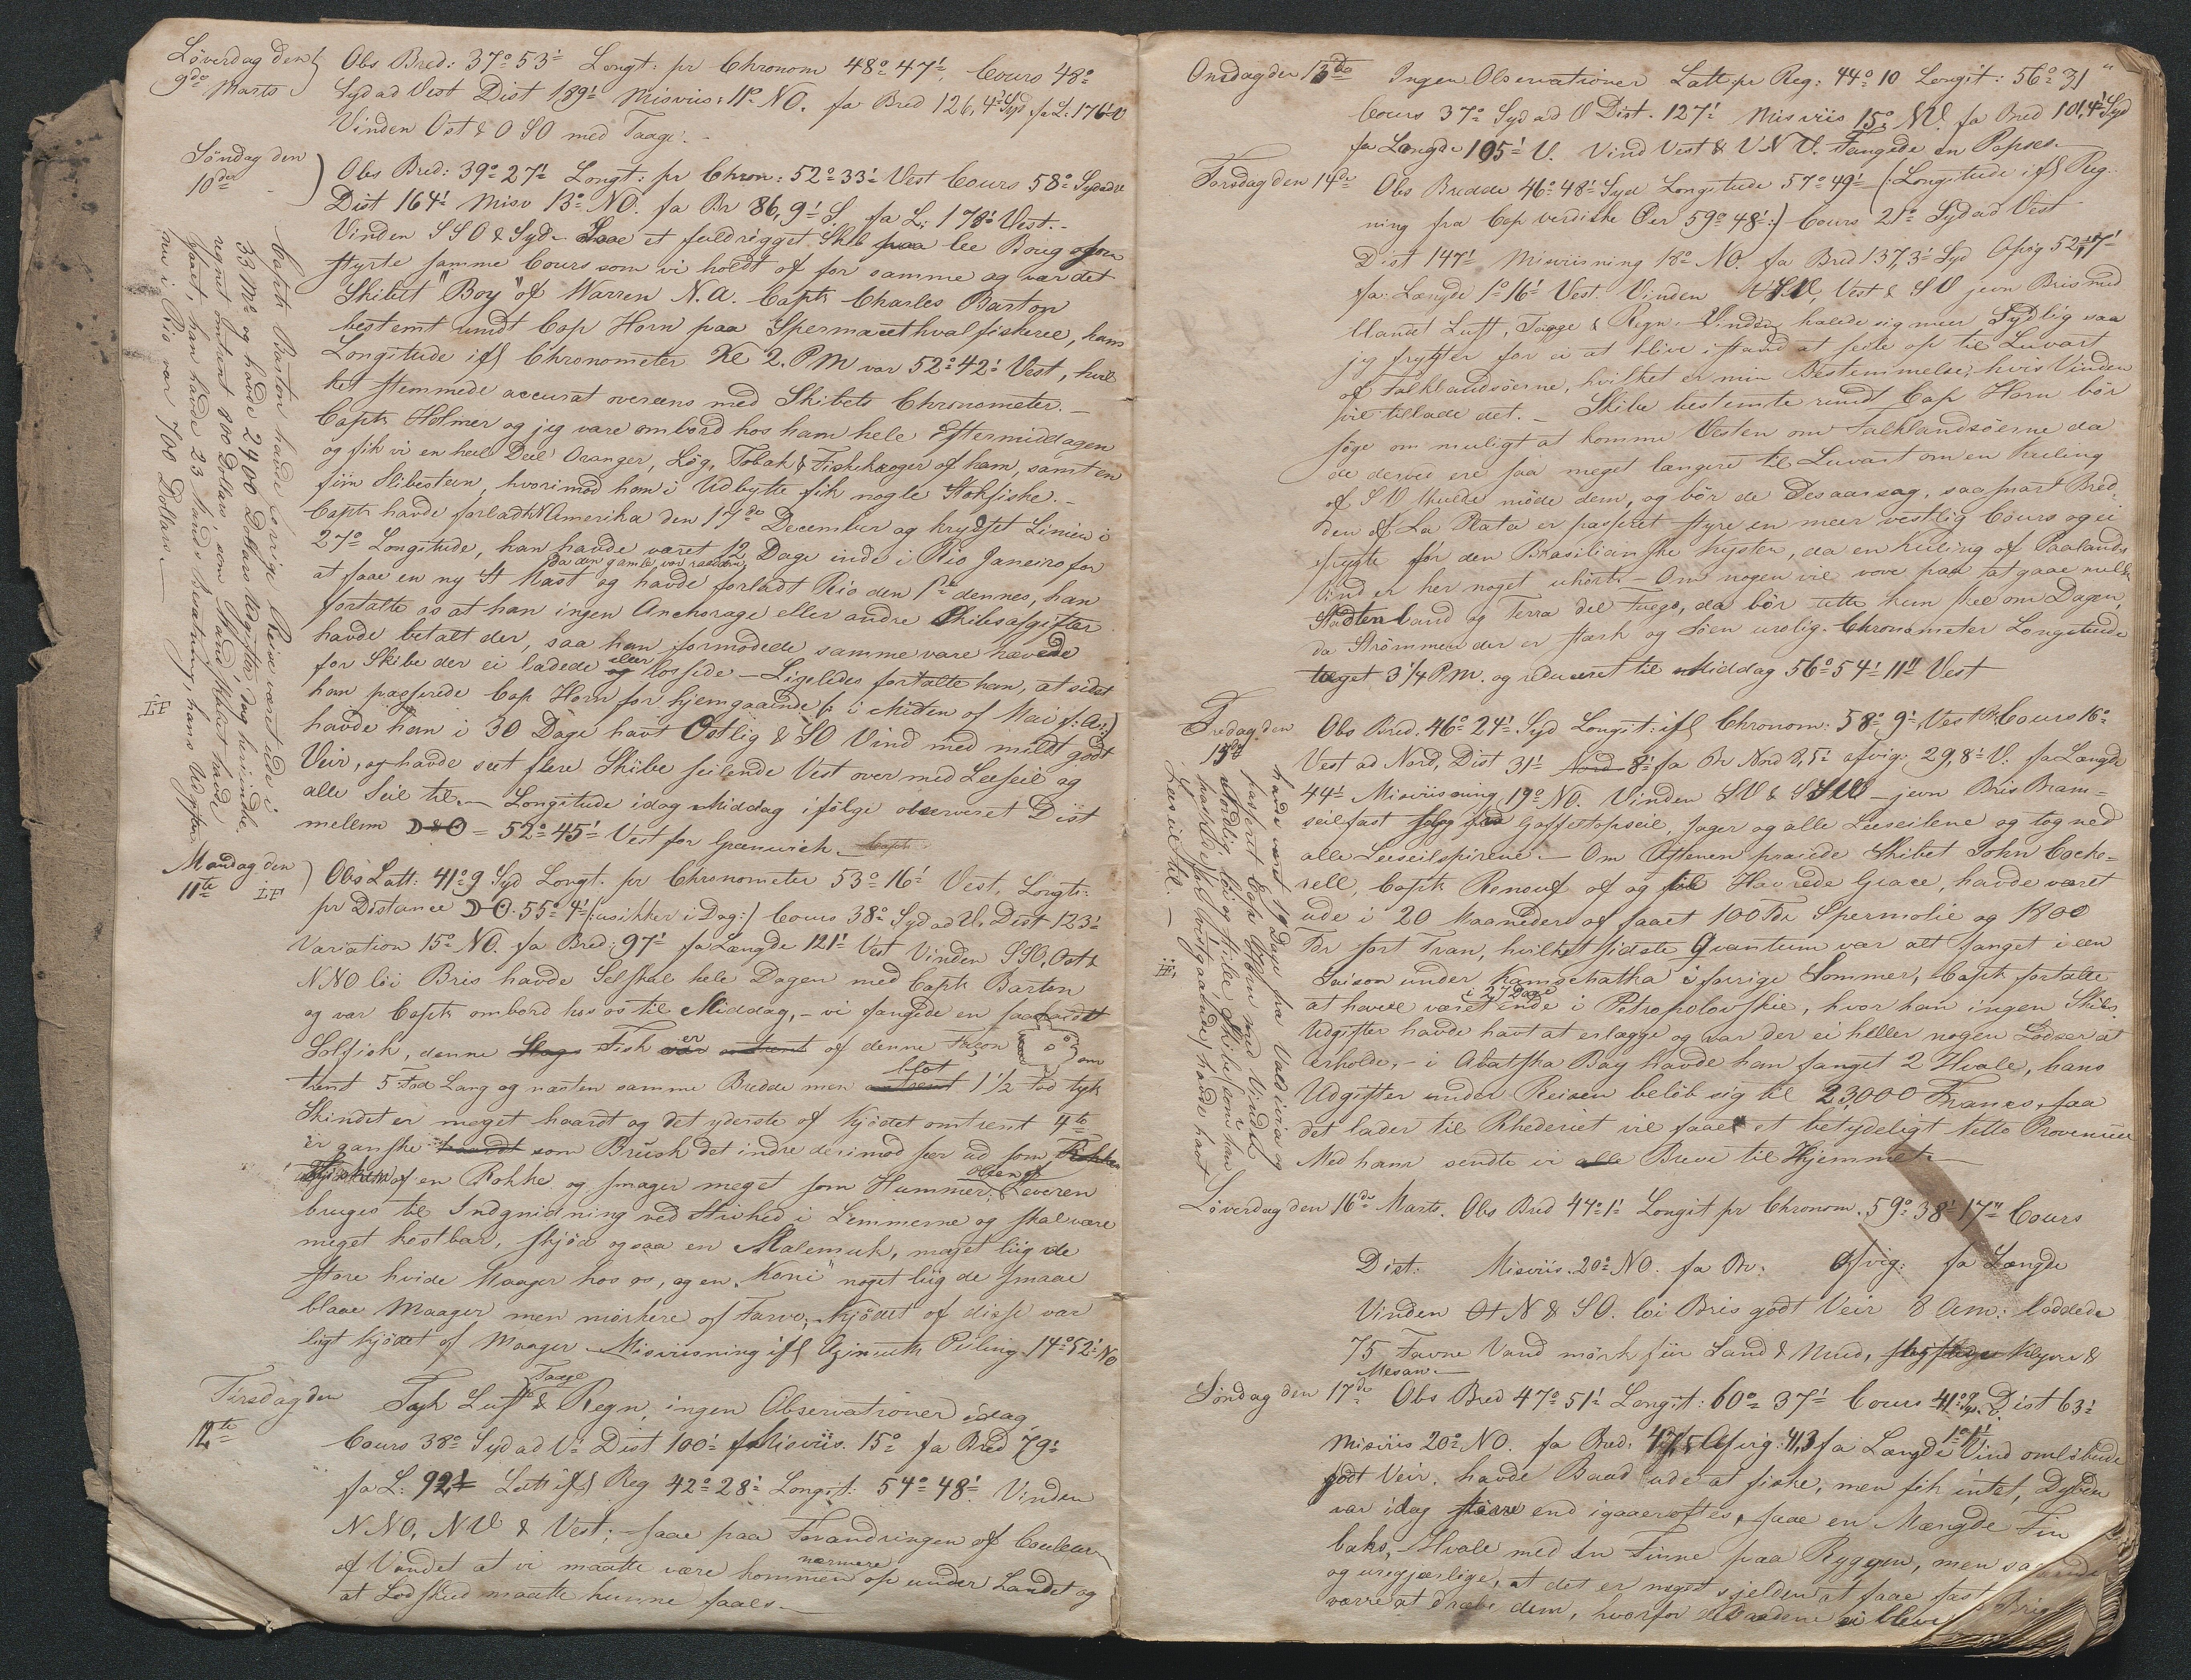 Löverdag den
9de Marts
Obs Bred: 37° 53' Longt: pr Chronom 48° 47'. Cours 48°
Syd ad Vest Dist 189' Misviis: 11° NO. fa Bred 126,4' Syd fa L: 176' V
Vinden Ost & OSO med Taage. -
Söndag den
10de
Obs Bred: 39° 27' Longt: pr Chron: 52° 33' Vest Cours 58° Syd ad V
Dist 164' Misv 13° NO. fa Br 86,9' S. fa L: 178' Vest. -
Vinden SSO & Syd - Saae et fuldrigget Skib paa lee Boug som
styrte samme Cours som vi holdt of for samme og var det
Skibet "Boy" of Warren N.A. Capt: Charles Barton
bestemt rundt Cap Horn paa Spermacethvalfiskerie, hans
Longitude ifl Chronometer Kl 2. PM var 52° 42' Vest, hvil
ket stemmede accurat overeens med Skibets Chronometer. -
Captn Holmer og jeg vare ombord hos ham hele Eftermiddagen
og fik vi en heel Deel Oranger, Lög, Tobak & Fiskekroger of ham, samt en
fiin Slibesteen, hvorimod han i Udbytte fik nogle Stokfiske. -
Captn havde forladt N Amerika den 17de December og krydset Linien i
27° Longitude, han havde været 12 Dage inde i Rio Janeiro for
da den gamle var raadden
at faae en ny St Mast og havde forladt Rio den 1te dennes, han
fortalte os at han ingen Anchorage eller andre Skibsafgifter
havde betalt der, saa han formodede samme vare hævede
for Skibe der ei ladede eller lossede - Ligeledes fortalte han, at sidst
han passerede Cap Horn for hjemgaaende (: i Midten of Mai f: A:)
havde han i 30 Dage havt Ostlig & SO Vind med mildt godt
Veir, og havde seet flere Skibe seilende Vest over med Leeseil og
alle Seil til. - Longitude idag Middag ifölge observeret Dist
mellem = 52° 45' Vest for Greenwich.
Captn Barton havde forrige Reise været ude i
33 Mr og havde 2400 Dollars Udgifter, dog herinde
regnet omtrent 800 Dollars, som Skibet havde
havt, han havde 23 Mands Besætning, hans Udgifter
nu i Rio var 700 Dollars. -
LF
Mandag den
11te
LF
Obs Latt: 41° 9 Syd Longt. pr Chronometer 53° 16' Vest, Longt:
pr Distance 55° 4' (: usikker i Dag:) Cours 38° Syd ad V. Dist 123'
Variation 15° NO. fa Bred: 97' fa Længde 121' Vest Vinden SSO, Ost &
NNO löi Bris havde Selskab hele Dagen med Captn Barton
og var Captn ombord hos os til Middag, - vi fangede en saakaldt
Solfisk, denne Fisk er of denne Façon om
trent 5 Fod Lang og næsten samme Bredde men blot 1 1/2 Fod tyk
Skindet er meget haardt og det yderste of Kjödet omtrent 4te
er ganske som Brusk det indre derimod seer ud som
of en Rokke og smager meget som Hummer. Leveren
bruges til Indgnidning ved Stivhed i Lemmerne og skal være
meget kostbar, skjöd ogsaa en Malemuk, meget liig de
store hvide Maager hos os, og en "Koni" noget liig de smaae
blaae Maager men mörkere of Farve, Kjödet of disse var
ligt Kjödet of Maager. Misviisning ifl Azimuth Peiling 14° 52' NO
Tirsdag den
12te
Tyk Luft Taage & Regn, ingen Observationer idag.
Cours 38° Syd ad V. Dist 100' Misviis. 15° fa Bred 79'
fa L: 92' Latt ifl Reg 42° 28' Longit: 54° 48' Vinden
NNO, NV & Vest; - saae paa Forandringen of Couleur
of Vandet at vi maatte være kommen nærmere op under Landet og
at Lodskud maatte kunne faaes. -
Onsdag den 13de Ingen Observationer Latt pr Reg: 44° 10 Longit: 56° 31"
Cours 37° Syd ad V Dist. 127' Misviis 15° NO. fa Bred 101,4' Syd
fa Længde 105' V. Vind Vest & VNV. Fangede en Popses.
Torsdag den 14de Obs Bredde 46° 48' Syd Longitude 57° 49' (: Longitude ifl Reg-
ning fra Cap verdiske Öer 59° 48':) Cours 21° Syd ad Vest
Dist 147' Misviisning 18° NO. fa Bred 137,3' Syd Afvig 52,7'
fa: Længde 1° 16' Vest. Vinden VSV, Vest & SV jevn Bris med
blandet Luft, Taage & Regn. - Vinden holder sig meer Sydlig saa
jeg frygter for ei at blive istand at seile op til Luvart
of Falklandsöerne, hvilket er min Bestemmelse, hvis Vinden
vil tillade det. - Skibe bestemte rundt Cap Horn bör
söge om muligt at komme Vesten om Falklandsöerne da
de derved ere saa meget længere til Luvart om en Kuling
of SV skulde möde dem, og bör de Desaarsag, saasnart Bred-
den of La Plata er passeret styre en meer vestlig Cours og ei
frygte for den Brasilianske Kysten, da en Kuling of Paalands
Vind er her noget uhört. - Om nogen vil vove paa at gaae mellem
Staatenland og Terra del Fuego, da bör dette kun skee om Dagen,
da Strömmen der er stærk og Söen urolig. Chronometer Longitude
taget 3 1/4 P.M. og reduceret til Middag 56° 54' 11" Vest
Fredag den
15de
Obs Bred. 46° 24' Syd Longit: ifl Chronom: 58° 9' Vest Cours 16°
Vest ad Nord, Dist 31' fa Br Nord 8,5' afvig: 29,8' V. fa Længde
44' Misviisning 19° NO. Vinden SV & SSV - jevn Bris Bram-
seil fast Gaffeltopseil, Jager og alle Leeseilene og tog ned
alle Leeseilspirene. - Om Aftenen praiede Skibet John Cocke-
rell, Captn Renouf of og til Havre de Grace, havde været
ude i 20 Maaneder og faaet 100 Tdr Spermolie og 1800
Tdr sort Tran, hvilket sidste Qvantum var alt fanget i een
Saison under Kamschatka i forrige Sommer, Captn fortalte
at have været i 27 Dage inde i Petropolovskie, hvor han ingen Skibs
Udgifter havde havt at erlægge og var der ei heller nogen Lodser at
erholde, - i Abatska Bay havde han fanget 2 Hvale, hans
Udgifter under Reisen belöb sig til 23,000 Francs, saa
det lader til Rhederiet vil faae et betydeligt Netto Provenue
Med ham sendte vi Breve til Hjemmet. -
havde været 19 Dage fra Valdivia og
passeret Cap Horn med Vinden
Nordlig, löi og stille Skibe som han
havde seet udgaaende havde havt
Leeseil til. -
LF,
Löverdag den 16de Marts. Obs Bred 47° 1' Longit pr Chronom. 59° 38' 17" Cours
Dist: Misviis. 20° NO. fa Br: Afvig: fa Længde
Vinden N & SO. löi Bris godt Veir 8 Am: loddede
75 Favne Vand mörk fiin Sand & Mud, Klyver &
Mesan. -
Söndag den 17de Obs Bred 47° 51' Longit: 60° 37' Cours 41° Dist 63'
Misviis 20° NO. fa Bred: 47,5 Afvig: 41,3 fa Længde 1° 1' Vind omlöbende
godt Veir. havde Baad ude at fiske, men fik intet, Dybden
var idag större end igaaraftes, saae en Mængde Fin
baks, Hvale med en Finne paa Ryggen, men saa
og uregjerlige, at det er meget sjelden at faae fast
værre at dræbe dem, hvorfor Baadene ei bleve